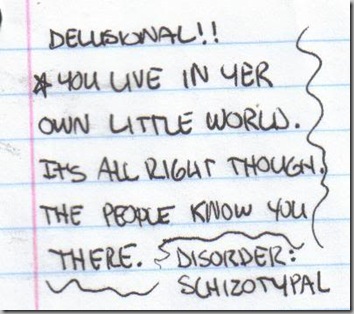 DELUSIONAL!!
* YOU LIVE IN YER
OWN LITTLE WORLD.
IT'S ALL RIGHT THOUGH.
THE PEOPLE KNOW YOU
THERE. DISORDER:
SCHIZOTYPAL